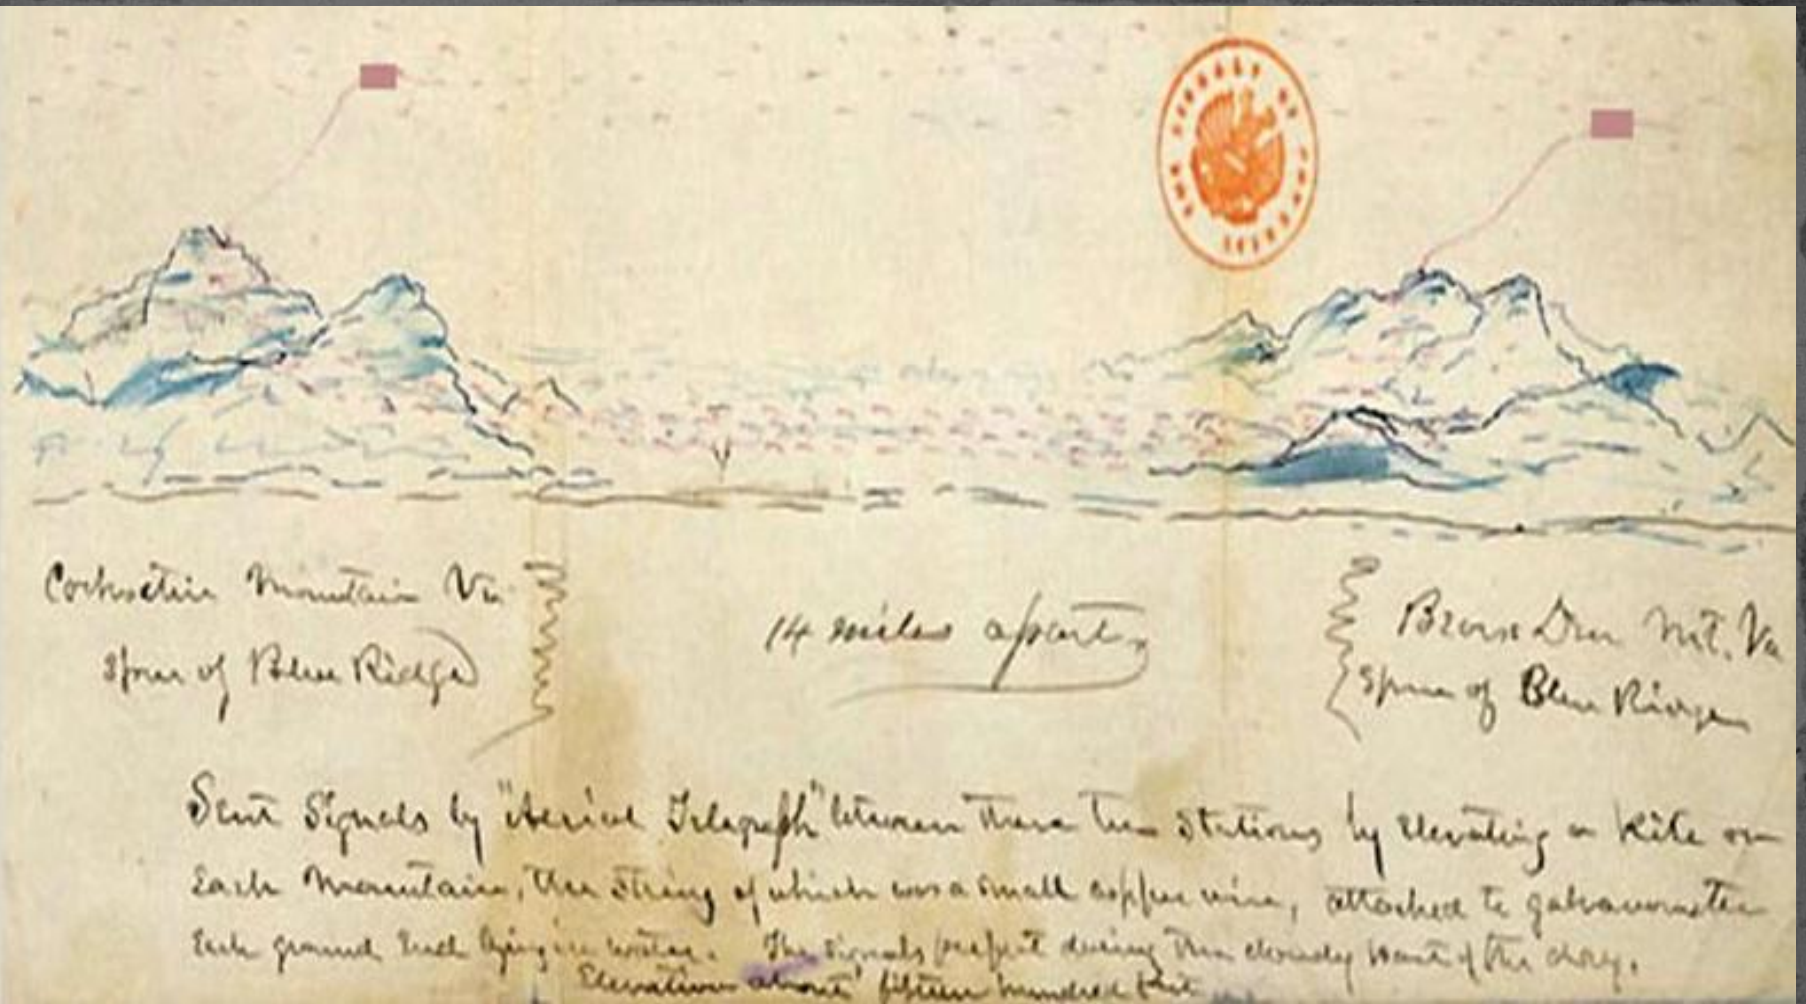 Cockoctin Mountain Va
Spur of Blue Ridge
14 miles apart
Bears Den Mt. Va
Spur of Blue Ridge
Sent Signals by "Aerial Telegraph" between these two Stations by elevating a Kite on
Each Mountain, the string of which was a small copper wire, attached to galvanometer
Each ground End lying in water. The Signals perfect during the cloudy part of the day.
Elevation about fifteen hundred feet
LIBRARY OF